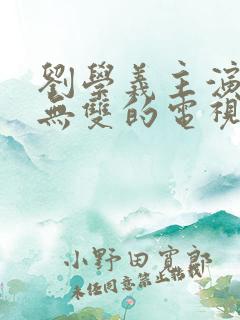 劉學義主演
無雙的電視
小野田寬郎
未经同意禁止转载